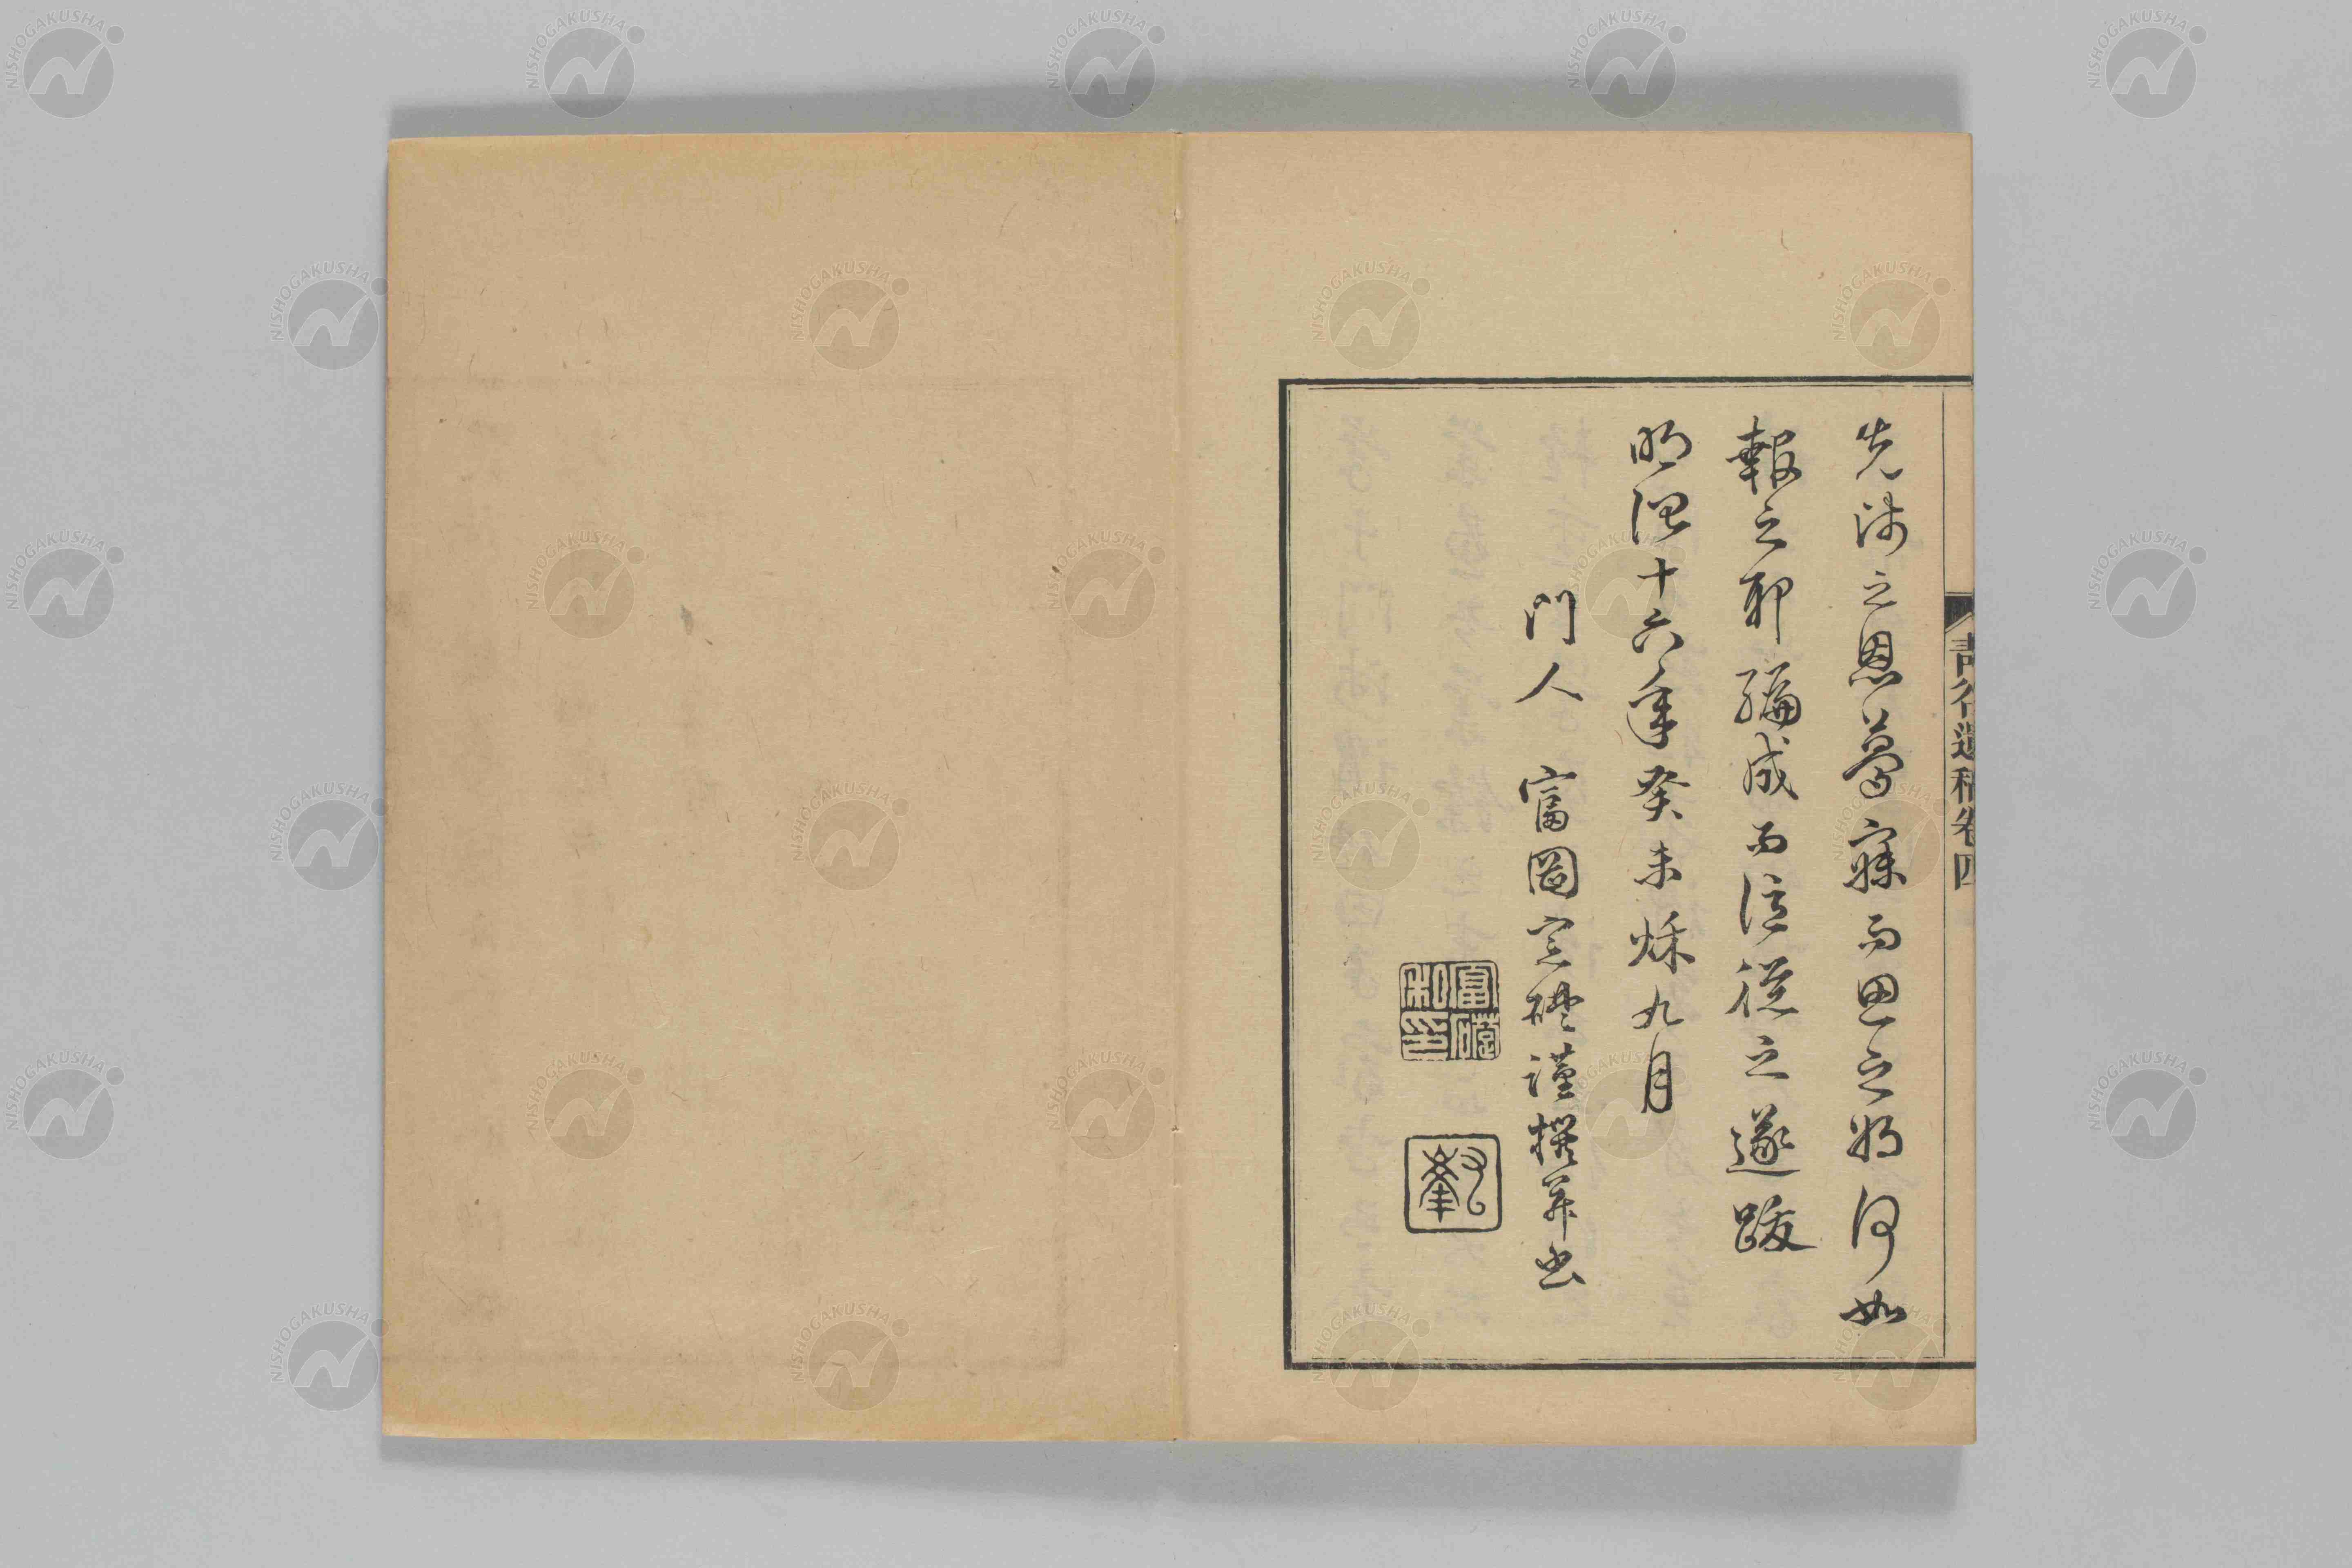 先師之恩夢寐而思之將何如
報之耶編成而從之遂跋
明治十六年癸未秌九月
門人 富岡礎謹撰并書
遺稿卷四
NISHOGAKUSHA